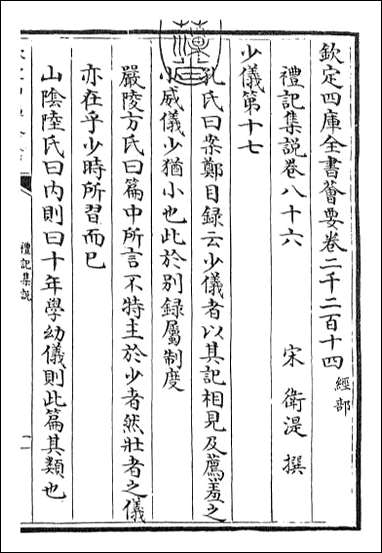 欽定四庫全書薈要卷二千二百十四 經部
禮記集說卷八十六
宋 衛湜 撰
少儀第十七
孔氏曰案鄭目録云少儀者以其記相見及薦羞之
小威儀少猶小也此於别録屬制度
嚴陵方氏曰篇中所言不特主於少者然壯者之儀
亦在乎少時所習而已
山陰陸氏曰内則曰十年學幼儀則此篇其類也
禮記集說